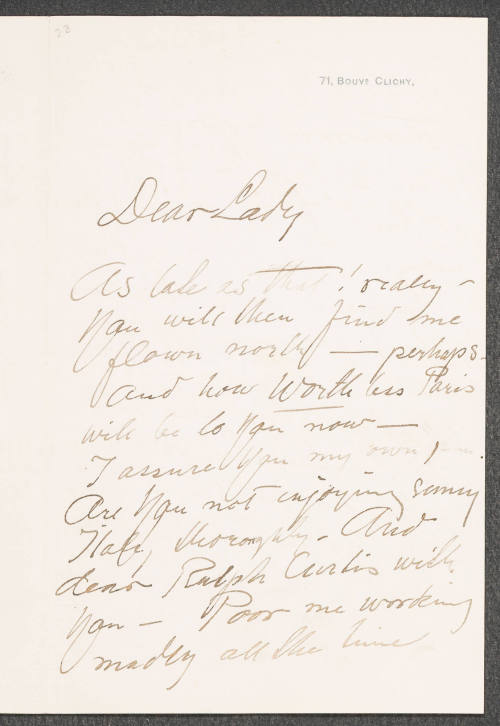 23
71, BOUVD CLICHY,
Dear Lady
As late as that! really –
You will then find me
flown north — perhaps.
And how Worthless Paris
will be to you now —
I assure you my own,
Are you not enjoying sunny
Italy thoroughly. And
dear Ralph Curtis with
you — Poor me working
madly all the time